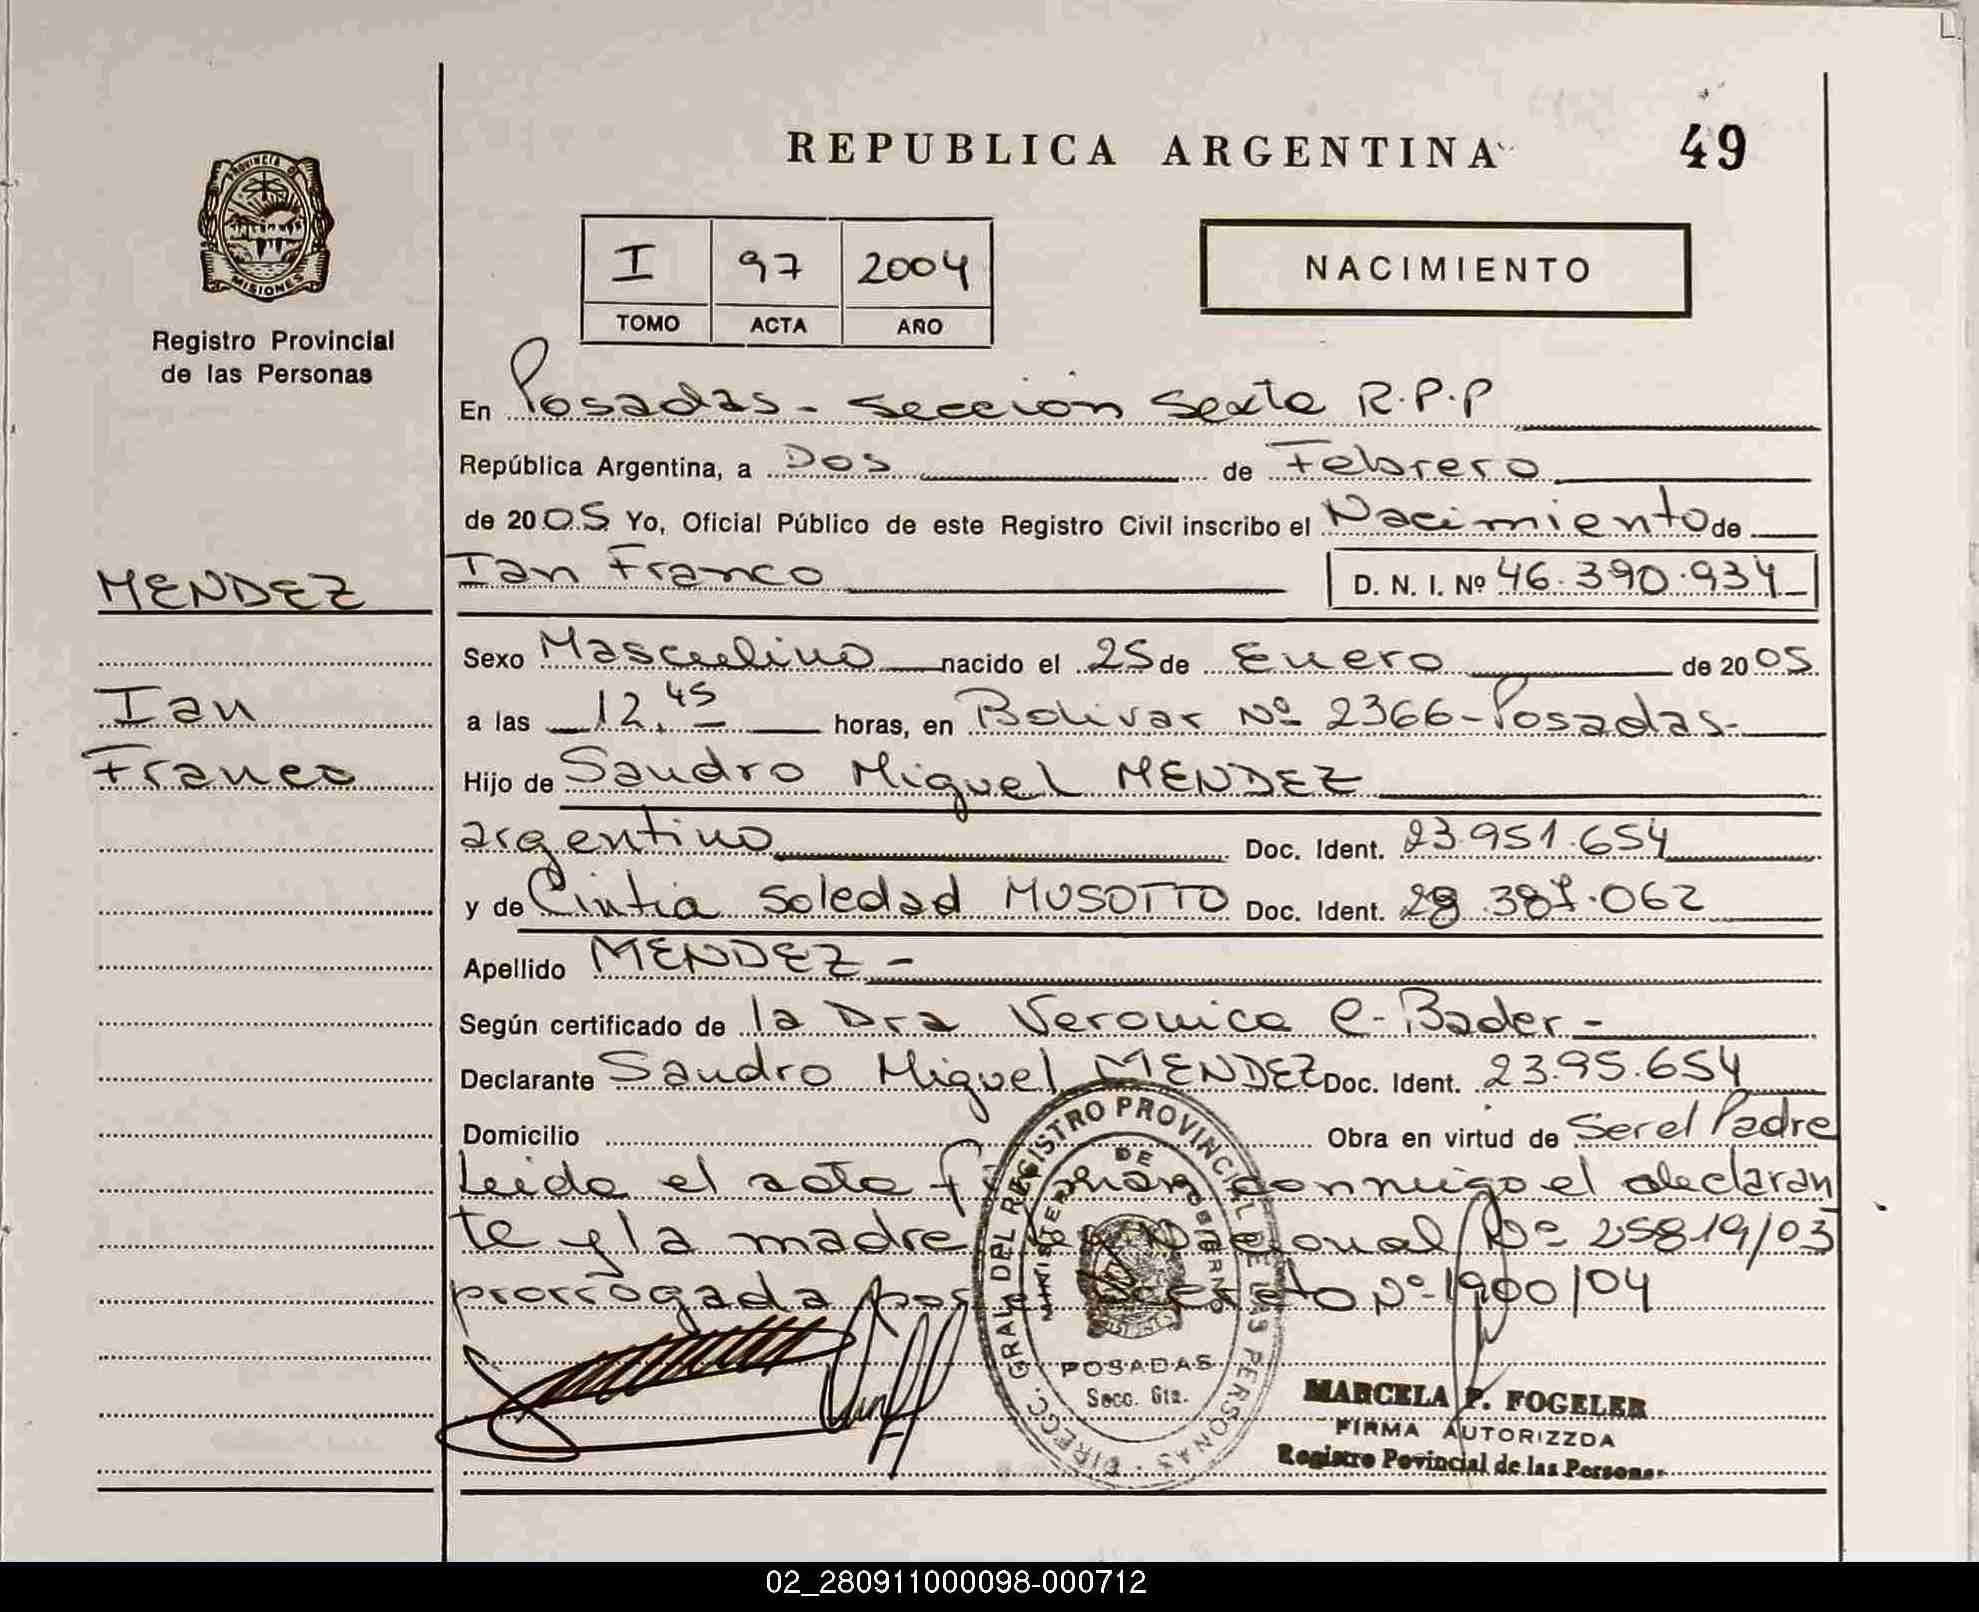 REPUBLICA ARGENTINA
49
PROVINCIA DE
MISIONES
Registro Provincial
de las Personas
I 97 2004
TOMO ACTA AÑO
NACIMIENTO
En Posadas - Seccion Sexta R.P.P
República Argentina, a Dos de Febrero
de 2005 Yo, Oficial Público de este Registro Civil inscribo el Nacimiento de
MENDEZ
Ian Franco
D. N. I. Nº 46.390.934
Sexo Masculino nacido el 25 de Enero de 2005
Ian
a las 12,45 horas, en Bolivar Nº 2366-Posadas-
Franco
Hijo de Sandro Miguel MENDEZ
argentino Doc. Ident. 23.951.654
y de Cintia Soledad MUSOTTO Doc. Ident. 28.387.062
Apellido MENDEZ -
Según certificado de la Dra Veronica E. Bader -
Declarante Sandro Miguel MENDEZ Doc. Ident. 23.95.654
Domicilio Obra en virtud de Ser el Padre
Leida el acta firman conmigo el declaran
te y la madre Ley Nacional Nº 25819/03
prorrogada por Decreto Nº 1900/04
DIRECC. GRAL. DEL REGISTRO PROVINCIAL DE LAS PERSONAS
MINISTERIO DE GOBIERNO
POSADAS
Secc. 6ta.
MARCELA P. FOGELER
FIRMA AUTORIZZDA
Registro Povincial de las Personas
02_280911000098-000712